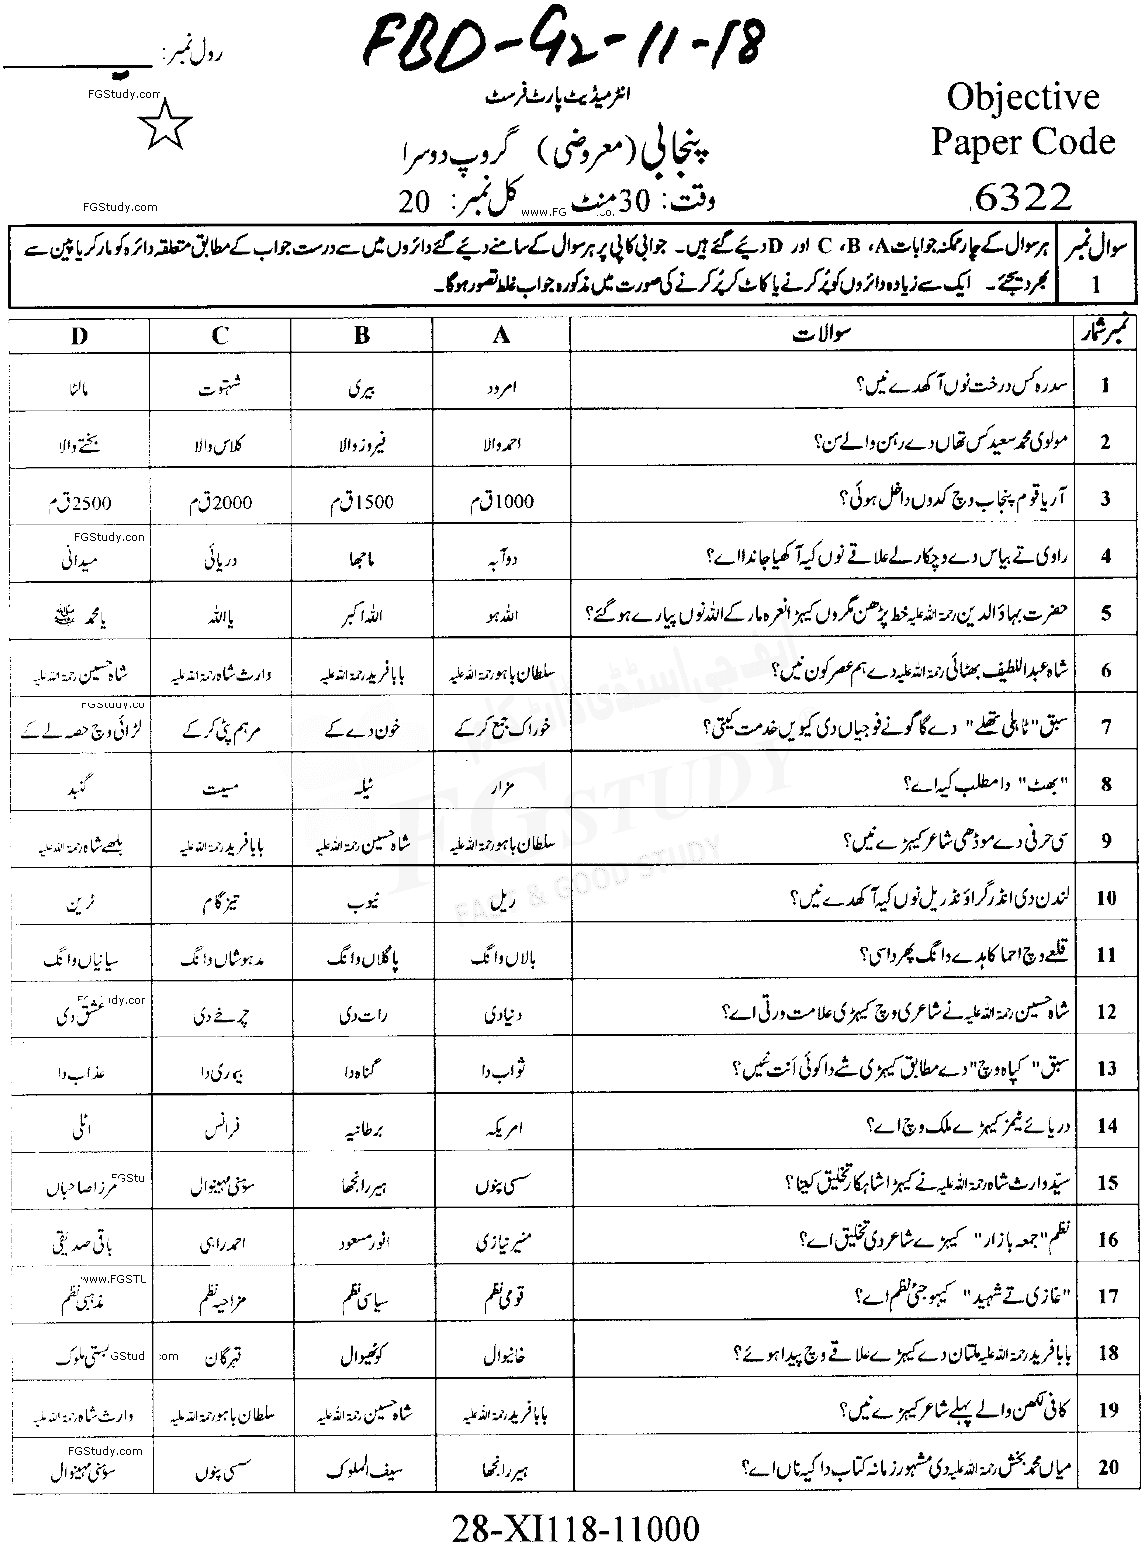 FBD-G2-11-18
رول نمبر:
FGStudy.com
انٹرمیڈیٹ پارٹ فرسٹ
Objective
Paper Code
6322
پنجابی (معروضی) گروپ دوسرا
FGStudy.com
وقت: 30 منٹ کل نمبر: 20
www.FG
سوال نمبر 1
ہر سوال کے چار ممکنہ جوابات A، B، C اور D دیئے گئے ہیں۔ جوابی کاپی پر ہر سوال کے سامنے دیئے گئے دائروں میں سے درست جواب کے مطابق متعلقہ دائرہ کو مارکر یا پین سے
بھر دیجئے۔ ایک سے زیادہ دائروں کو پُر کرنے یا کاٹ کر پُر کرنے کی صورت میں مذکورہ جواب غلط تصور ہوگا۔
نمبر شمار سوالات A B C D
1 سدرہ کس درخت نوں آکھدے نیں؟ امرود بیری شہتوت مالٹا
2 مولوی محمد سعید کس تھاں دے رہن والے سن؟ احمد والا فیروز والا کلاس والا بختے والا
3 آریا قوم پنجاب وچ کدوں داخل ہوئی؟ 1000ق م 1500ق م 2000ق م 2500ق م
FGStudy.con
4 راوی تے بیاس دے وچکارلے علاقے نوں کیہ آکھیا جاندا اے؟ دوآبہ ماجھا دریائی میدانی
5 حضرت بہاؤالدین رحمۃ اللہ علیہ خط پڑھن مگروں کیہڑا نعرہ مار کے اللہ نوں پیارے ہو گئے؟ اللہ ہو اللہ اکبر یا اللہ یا محمد ﷺ
6 شاہ عبداللطیف بھٹائی رحمۃ اللہ علیہ دے ہم عصر کون نیں؟ سلطان باہو رحمۃ اللہ علیہ بابا فرید رحمۃ اللہ علیہ وارث شاہ رحمۃ اللہ علیہ شاہ حسین رحمۃ اللہ علیہ
FGStudy.co
7 سبق "ٹاہلی تھلے" دے گاگو نے فوجیاں دی کیویں خدمت کیتی؟ خوراک جمع کر کے خون دے کے مرہم پٹی کر کے لڑائی وچ حصہ لے کے
8 "بھٹ" دا مطلب کیہ اے؟ مزار ٹیلہ مسیت گنبد
9 سی حرفی دے موڈھی شاعر کیہڑے نیں؟ سلطان باہو رحمۃ اللہ علیہ شاہ حسین رحمۃ اللہ علیہ بابا فرید رحمۃ اللہ علیہ بلھے شاہ رحمۃ اللہ علیہ
FG STUDY
FAST & GOOD STUDY
10 لندن دی انڈر گراؤنڈ ریل نوں کیہ آکھدے نیں؟ ریل ٹیوب تیزگام ٹرین
11 قلعے وچ احما کاہدے وانگ پھردا سی؟ بالاں وانگ پاگلاں وانگ مدہوشاں وانگ سیانیاں وانگ
12 شاہ حسین رحمۃ اللہ علیہ نے شاعری وچ کیہڑی علامت ورتی اے؟ دنیا دی رات دی چرخے دی عشق دی
13 سبق "کپاہ وچ" دے مطابق کیہڑی شے دا کوئی اَنت نئیں؟ ثواب دا گناہ دا بیماری دا عذاب دا
14 دریائے ٹیمز کیہڑے ملک وچ اے؟ امریکہ برطانیہ فرانس اٹلی
15 سیّد وارث شاہ رحمۃ اللہ علیہ نے کیہڑا شاہکار تخلیق کیتا؟ سسی پنوں ہیر رانجھا سوہنی مہینوال مرزا صاحباں
FGStu
16 نظم "جمعہ بازار" کیہڑے شاعر دی تخلیق اے؟ منیر نیازی انور مسعود احمد راہی باقی صدیقی
www.FGSTU
17 "غازی تے شہید" کیہو جئی نظم اے؟ قومی نظم سیاسی نظم مزاحیہ نظم مذہبی نظم
18 بابا فرید رحمۃ اللہ علیہ ملتان دے کیہڑے علاقے وچ پیدا ہوئے؟ خانیوال کوٹھیوال قہرگان بستی ملوک
GStud com
19 کافی لکھن والے پہلے شاعر کیہڑے نیں؟ بابا فرید رحمۃ اللہ علیہ شاہ حسین رحمۃ اللہ علیہ سلطان باہو رحمۃ اللہ علیہ وارث شاہ رحمۃ اللہ علیہ
FGStudy.com
20 میاں محمد بخش رحمۃ اللہ علیہ دی مشہور زمانہ کتاب دا کیہ ناں اے؟ ہیر رانجھا سیف الملوک سسی پنوں سوہنی مہینوال
28-XI118-11000